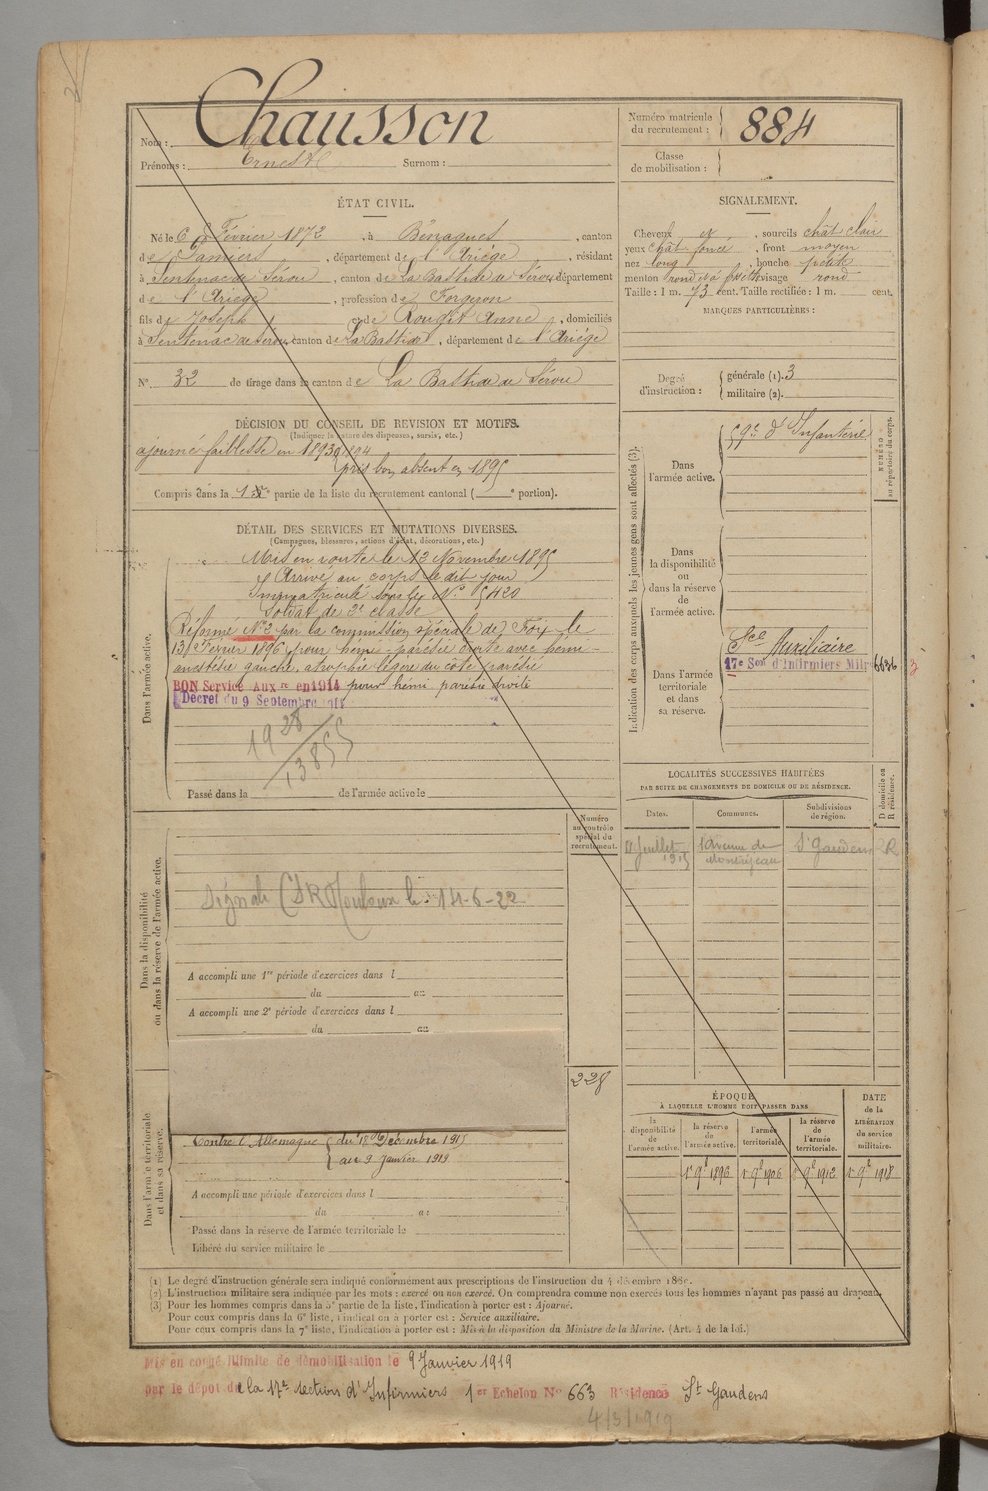 Chausson
Nom :
Prénoms : Ernest Surnom :
Numéro matricule du recrutement : 884
Classe de mobilisation :
ÉTAT CIVIL.
Né le 6 Février 1872, à Bénagues, canton
de Pamiers, département de l'Ariège, résidant
à Sentenac de Sérou, canton de La Bastide de Sérou, département
de l'Ariège, profession de Forgeron
fils de Joseph et de Rouget Anne, domiciliés
à Sentenac de Sérou, canton de La Bastide, département de l'Ariège
N° 32 de tirage dans le canton de La Bastide de Sérou
SIGNALEMENT.
Cheveux et, sourcils chât clair
yeux chât foncé, front moyen
nez long, bouche petite
menton rond et à fossette visage rond
Taille : 1 m. 73 cent. Taille rectifiée : 1 m. cent.
MARQUES PARTICULIÈRES :
Degré d'instruction : générale (1). 3
militaire (2).
DÉCISION DU CONSEIL DE REVISION ET MOTIFS.
(Indiquer la nature des dispenses, sursis, etc.)
ajourné faiblesse en 1893 1894
pris bon absent en 1895
Compris dans la 1re partie de la liste du recrutement cantonal ( e portion).
DÉTAIL DES SERVICES ET MUTATIONS DIVERSES.
(Campagnes, blessures, actions d'éclat, décorations, etc.)
Dans l'armée active.
Mis en route le 12 Novembre 1895
Arrivé au corps le dit jour
Immatriculé sous le N° 5420
Soldat de 2e classe
Réformé N° 2 par la commission spéciale de Foix le
13 Février 1896 pour hémi-parésie droite avec hémi-
anesthésie gauche, atrophie légère du côté parésié
BON Service Auxre en 1914 pour hémi parésie droite
Décret du 9 Septembre 1914
1928
13855
Passé dans la de l'armée active le
Indication des corps auxquels les jeunes gens sont affectés (3).
NUMÉRO au répertoire du corps.
Dans l'armée active.
59e d'Infanterie
Dans la disponibilité ou dans la réserve de l'armée active.
Dans l'armée territoriale et dans sa réserve.
Sce Auxiliaire
17e Son d'Infirmiers Milres 6636 3
LOCALITÉS SUCCESSIVES HABITÉES
PAR SUITE DE CHANGEMENTS DE DOMICILE OU DE RÉSIDENCE.
Dates. Communes. Subdivisions de région. D domicile ou R résidence.
11 Juillet 1915 1 Avenue de Montréjeau St Gaudens R
Dans la disponibilité ou dans la réserve de l'armée active.
Numéro au contrôle spécial du recrutement.
Signalé CSR Toulouse le 14-6-22
A accompli une 1re période d'exercices dans l
du au
A accompli une 2e période d'exercices dans l
du au
228
Dans l'armée territoriale et dans sa réserve.
Contre l'Allemagne du 18 Décembre 1915
au 9 Janvier 1919
A accompli une période d'exercices dans l
du au
Passé dans la réserve de l'armée territoriale le
Libéré du service militaire le
ÉPOQUE
À LAQUELLE L'HOMME DOIT PASSER DANS
la disponibilité de l'armée active. la réserve de l'armée active. l'armée territoriale. la réserve de l'armée territoriale. DATE de la LIBÉRATION du service militaire.
1er 9bre 1896 1er 9bre 1906 1er 9bre 1912 1er 9bre 1918
(1) Le degré d'instruction générale sera indiqué conformément aux prescriptions de l'instruction du 4 décembre 1889.
(2) L'instruction militaire sera indiquée par les mots : exercé ou non exercé. On comprendra comme non exercés tous les hommes n'ayant pas passé au drapeau.
(3) Pour les hommes compris dans la 5e partie de la liste, l'indication à porter est : Ajourné.
Pour ceux compris dans la 6e liste, l'indication à porter est : Service auxiliaire.
Pour ceux compris dans la 7e liste, l'indication à porter est : Mis à la disposition du Ministre de la Marine. (Art. 4 de la loi.)
Mis en congé illimité de démobilisation le 9 Janvier 1919
par le dépôt de la 17e section d'Infirmiers 1er Echelon N° 663 Résidence St Gaudens
4/3/1919